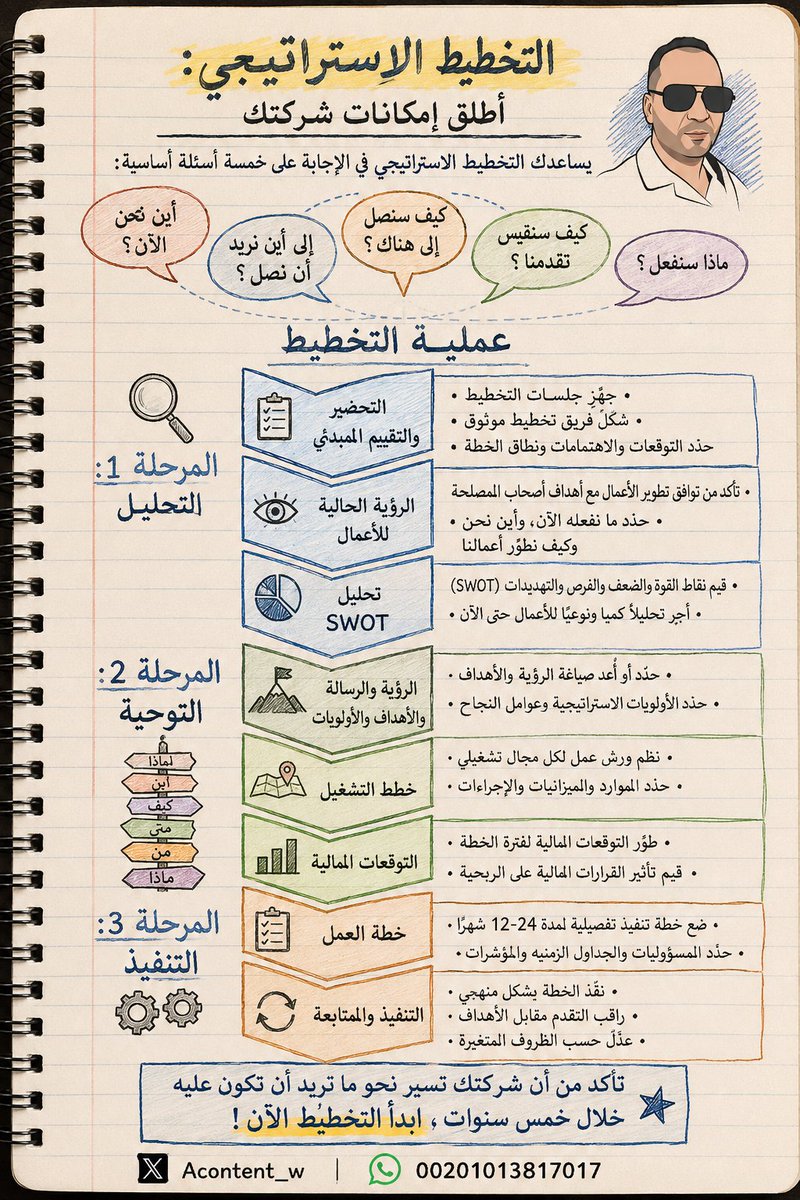 التخطيط الإستراتيجي:
أطلق إمكانات شركتك
يساعدك التخطيط الاستراتيجي في الإجابة على خمسة أسئلة أساسية:
أين نحن
الآن؟
إلى أين نريد
أن نصل؟
كيف سنصل
إلى هناك؟
كيف سنقيس
تقدمنا؟
ماذا سنفعل؟
عمليـة التخطيط
المرحلة 1:
التحليل
التحضير
والتقييم المبدئي
• جهّز جلسات التخطيط
• شكّل فريق تخطيط موثوق
حدّد التوقعات والاهتمامات ونطاق الخطة •
الرؤية الحالية
للأعمال
• تأكد من توافق تطوير الأعمال مع أهداف أصحاب المصلحة
• حدّد ما نفعله الآن، وأين نحن
وكيف نطوّر أعمالنا
تحليل
SWOT
• قيم نقاط القوة والضعف والفرص والتهديدات (SWOT)
• أجرِ تحليلاً كميا ونوعيًا للأعمال حتى الآن
المرحلة 2:
التوحية
لماذا
أين
كيف
متى
من
ماذا
الرؤية والرسالة
والأهداف والأولويات
• حدّد أو أُعد صياغة الرؤية والأهداف
• حدّد الأولويات الاستراتيجية وعوامل النجاح
خطط التشغيل
• نظم ورش عمل لكل مجال تشغيلي
• حدّد الموارد والميزانيات والإجراءات
التوقعات المالية
• طوّر التوقعات المالية لفترة الخطة
• قيم تأثير القرارات المالية على الربحية
المرحلة 3:
التنفيذ
خطة العمل
• ضع خطة تنفيذ تفصيلية لمدة 12-24 شهرًا
• حدّد المسؤوليات والجداول الزمنيه والمؤشرات
التنفيذ والمتابعة
• نفّذ الخطة بشكل منهجي
• راقب التقدم مقابل الأهداف
• عدّل حسب الظروف المتغيرة
تأكد من أن شركتك تسير نحو ما تريد أن تكون عليه
خلال خمس سنوات، ابدأ التخطيط الآن!
Acontent_w | 00201013817017